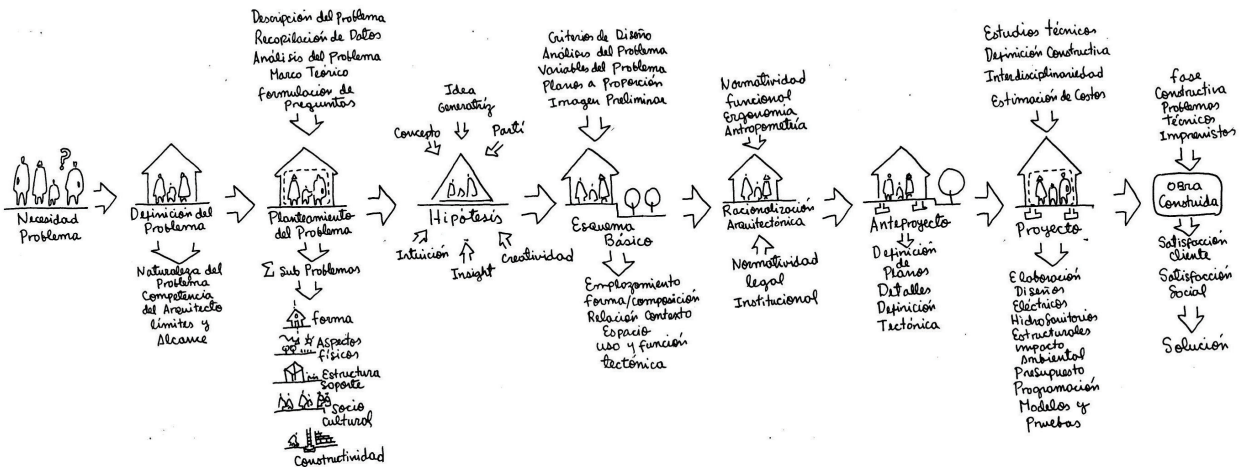 ?
Necesidad
Problema
Definición del
Problema
Naturaleza del
Problema
Competencia
del Arquitecto
límites y
Alcance
Descripción del Problema
Recopilación de Datos
Análisis del Problema
Marco Teórico
Formulación de
Preguntas
Planteamiento
del Problema
Σ Sub Problemas
forma
Aspectos
físicos
Estructura
soporte
Socio
Cultural
Constructividad
Idea
Generatríz
Concepto
Partí
Hipótesis
Intuición
Insight
Creatividad
Criterios de Diseño
Análisis del Problema
Variables del Problema
Planos a Proporción
Imagen Preliminar
Esquema
Básico
Emplazamiento
forma/composición
Relación Contexto
Espacio
uso y función
tectónica
Normatividad
funcional
Ergonomía
Antropometría
Racionalización
Arquitectónica
Normatividad
legal
Institucional
Anteproyecto
Definición
de
Planos
Detalles
Definición
Tectónica
Estudios técnicos
Definición Constructiva
Interdisciplinariedad
Estimación de Costos
Proyecto
Elaboración
Diseños
Eléctricos
Hidrosanitorios
Estructurales
impacto
Ambiental
Presupuesto
Programación
Modelos y
Pruebas
fase
Constructiva
Problemas
Técnicos
Imprevistos
Obra
Construida
Satisfacción
Cliente
Satisfacción
Social
Solución